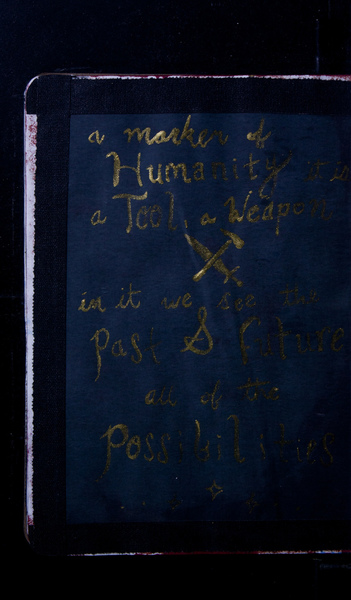 a marker of
Humanity it is
a Tool, a Weapon
in it we see the
Past & Future
all of the
Possibilities